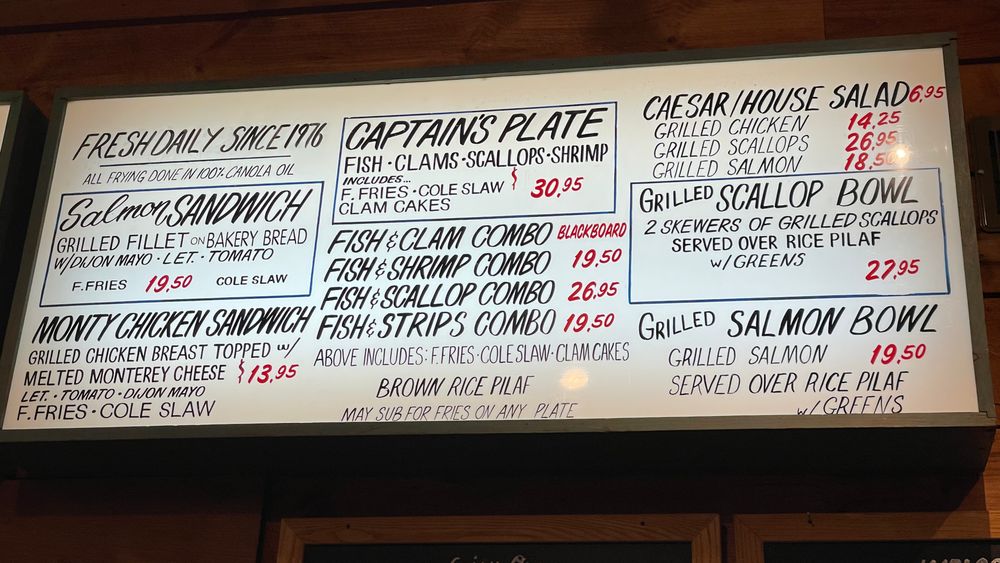 FRESH DAILY SINCE 1976
ALL FRYING DONE IN 100% CANOLA OIL
Salmon SANDWICH
GRILLED FILLET ON BAKERY BREAD
W/DIJON MAYO · LET. · TOMATO
F.FRIES 19.50 COLE SLAW
MONTY CHICKEN SANDWICH
GRILLED CHICKEN BREAST TOPPED W/
MELTED MONTEREY CHEESE $13.95
LET. · TOMATO · DIJON MAYO
F. FRIES · COLE SLAW
CAPTAIN'S PLATE
FISH · CLAMS · SCALLOPS · SHRIMP
INCLUDES...
F. FRIES · COLE SLAW $30.95
CLAM CAKES
FISH & CLAM COMBO BLACKBOARD
FISH & SHRIMP COMBO 19.50
FISH & SCALLOP COMBO 26.95
FISH & STRIPS COMBO 19.50
ABOVE INCLUDES: F.FRIES · COLE SLAW · CLAM CAKES
BROWN RICE PILAF
MAY SUB FOR FRIES ON ANY PLATE
CAESAR/HOUSE SALAD 6.95
GRILLED CHICKEN 14.25
GRILLED SCALLOPS 26.95
GRILLED SALMON 18.50
GRILLED SCALLOP BOWL
2 SKEWERS OF GRILLED SCALLOPS
SERVED OVER RICE PILAF
W/GREENS
27.95
GRILLED SALMON BOWL
GRILLED SALMON 19.50
SERVED OVER RICE PILAF
W/GREENS